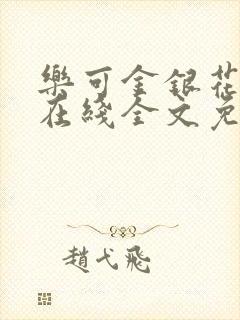 樂可金銀花
在綫全文免
趙弋飛